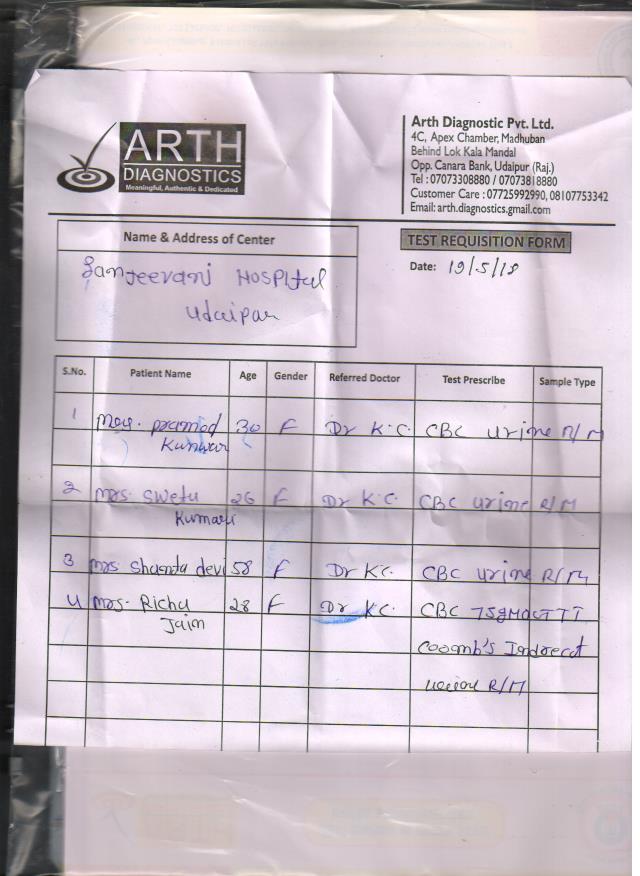 ARTH
DIAGNOSTICS
Meaningful, Authentic & Dedicated
Arth Diagnostic Pvt. Ltd.
4C, Apex Chamber, Madhuban
Behind Lok Kala Mandal
Opp. Canara Bank, Udaipur (Raj.)
Tel : 07073308880 / 07073818880
Customer Care : 07725992990, 08107753342
Email: arth.diagnostics.gmail.com
Name & Address of Center
Sanjeevani Hospital
Udaipur
TEST REQUISITION FORM
Date: 19/5/18
S.No. Patient Name Age Gender Referred Doctor Test Prescribe Sample Type
1 Mrs. pramod 30 F Dr K.C. CBC urine R/M
Kunwar
2 Mrs. Sweta 26 F Dr K.C. CBC urine R/M
Kumari
3 Mrs. Shanta devi 58 F Dr K.C. CBC urine R/M
4 Mrs. Richa 28 F Dr K.C. CBC
Jain
Coomb's Indirect
urine R/M